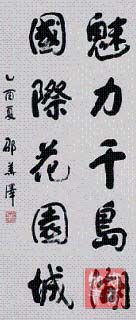 魅力千島湖
國際花園城
乙酉夏 邵華澤